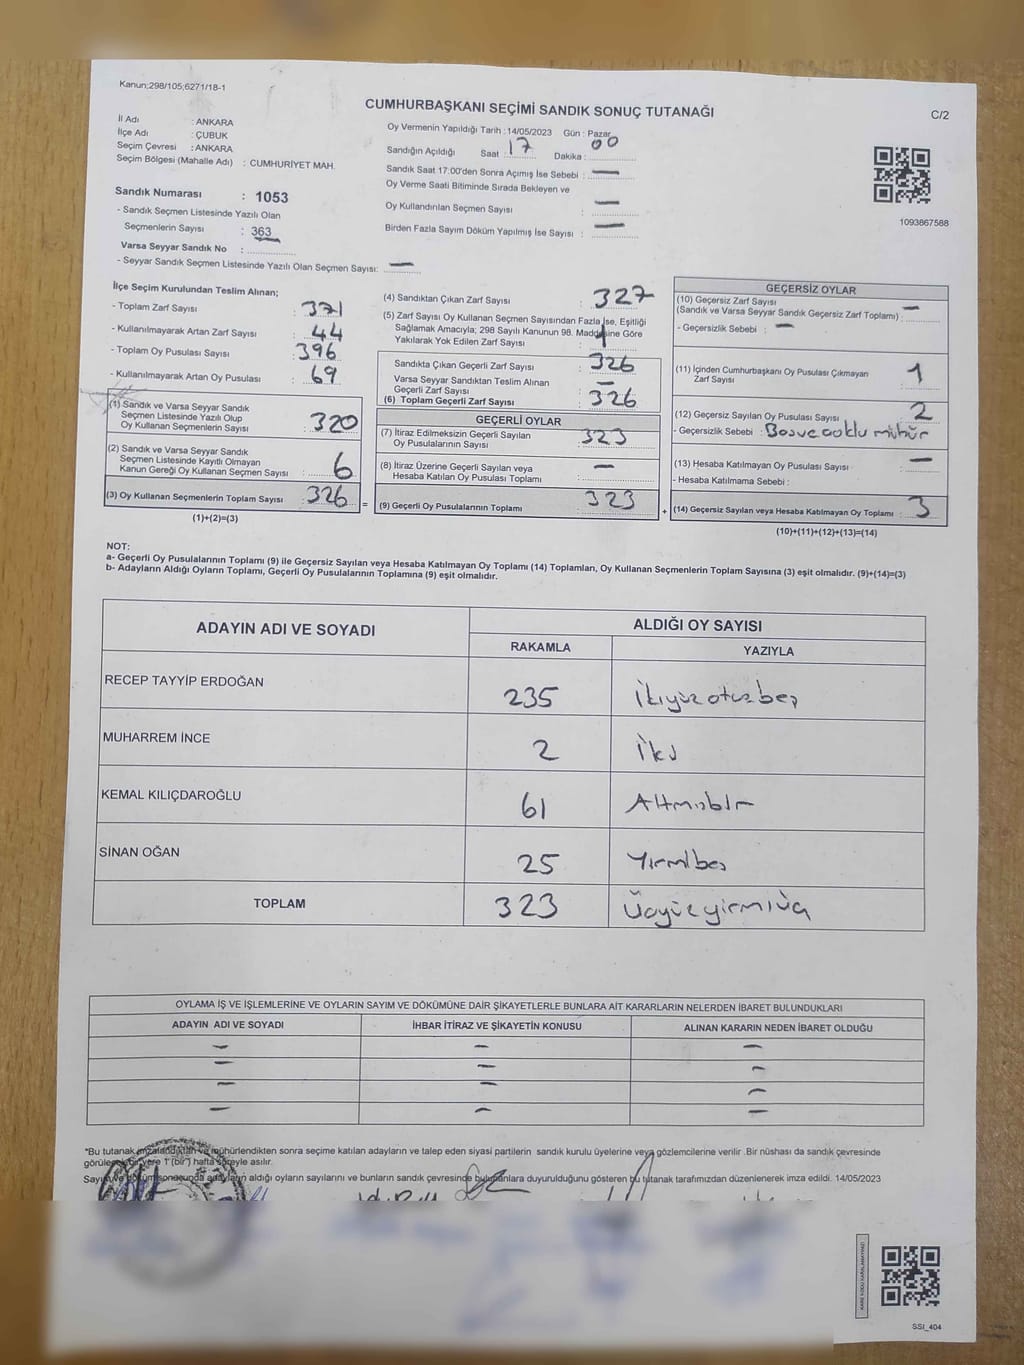 Kanun;298/105;6271/18-1
CUMHURBAŞKANI SEÇİMİ SANDIK SONUÇ TUTANAĞI
C/2
İl Adı : ANKARA
İlçe Adı : ÇUBUK
Seçim Çevresi : ANKARA
Seçim Bölgesi (Mahalle Adı) : CUMHURİYET MAH.
Sandık Numarası : 1053
- Sandık Seçmen Listesinde Yazılı Olan
Seçmenlerin Sayısı : 363
Varsa Seyyar Sandık No :
- Seyyar Sandık Seçmen Listesinde Yazılı Olan Seçmen Sayısı: —
Oy Vermenin Yapıldığı Tarih : 14/05/2023 Gün : Pazar
Sandığın Açıldığı Saat 17 Dakika : 00
Sandık Saat 17:00'den Sonra Açımış İse Sebebi : —
Oy Verme Saati Bitiminde Sırada Bekleyen ve
Oy Kullandırılan Seçmen Sayısı : —
Birden Fazla Sayım Döküm Yapılmış İse Sayısı : —
1093867588
İlçe Seçim Kurulundan Teslim Alınan;
- Toplam Zarf Sayısı : 371
- Kullanılmayarak Artan Zarf Sayısı : 44
- Toplam Oy Pusulası Sayısı : 396
- Kullanılmayarak Artan Oy Pusulası : 69
(1) Sandık ve Varsa Seyyar Sandık
Seçmen Listesinde Yazılı Olup
Oy Kullanan Seçmenlerin Sayısı : 320
(2) Sandık ve Varsa Seyyar Sandık
Seçmen Listesinde Kayıtlı Olmayan
Kanun Gereği Oy Kullanan Seçmen Sayısı : 6
(3) Oy Kullanan Seçmenlerin Toplam Sayısı : 326
(1)+(2)=(3)
(4) Sandıktan Çıkan Zarf Sayısı : 327
(5) Zarf Sayısı Oy Kullanan Seçmen Sayısından Fazla İse, Eşitliği
Sağlamak Amacıyla; 298 Sayılı Kanunun 98. Maddesine Göre
Yakılarak Yok Edilen Zarf Sayısı : 1
Sandıkta Çıkan Geçerli Zarf Sayısı : 326
Varsa Seyyar Sandıktan Teslim Alınan
Geçerli Zarf Sayısı : —
(6) Toplam Geçerli Zarf Sayısı : 326
GEÇERLİ OYLAR
(7) İtiraz Edilmeksizin Geçerli Sayılan
Oy Pusulalarının Sayısı : 323
(8) İtiraz Üzerine Geçerli Sayılan veya
Hesaba Katılan Oy Pusulası Toplamı : —
= (9) Geçerli Oy Pusulalarının Toplamı : 323 +
GEÇERSİZ OYLAR
(10) Geçersiz Zarf Sayısı
(Sandık ve Varsa Seyyar Sandık Geçersiz Zarf Toplamı) : —
- Geçersizlik Sebebi : —
(11) İçinden Cumhurbaşkanı Oy Pusulası Çıkmayan
Zarf Sayısı : 1
(12) Geçersiz Sayılan Oy Pusulası Sayısı : 2
- Geçersizlik Sebebi : Boş ve çoklu mühür
(13) Hesaba Katılmayan Oy Pusulası Sayısı : —
- Hesaba Katılmama Sebebi :
(14) Geçersiz Sayılan veya Hesaba Katılmayan Oy Toplamı : 3
(10)+(11)+(12)+(13)=(14)
NOT:
a- Geçerli Oy Pusulalarının Toplamı (9) ile Geçersiz Sayılan veya Hesaba Katılmayan Oy Toplamı (14) Toplamları, Oy Kullanan Seçmenlerin Toplam Sayısına (3) eşit olmalıdır. (9)+(14)=(3)
b- Adayların Aldığı Oyların Toplamı, Geçerli Oy Pusulalarının Toplamına (9) eşit olmalıdır.
ADAYIN ADI VE SOYADI ALDIĞI OY SAYISI
RAKAMLA YAZIYLA
RECEP TAYYİP ERDOĞAN 235 İkiyüzotuzbeş
MUHARREM İNCE 2 İki
KEMAL KILIÇDAROĞLU 61 Altmışbir
SİNAN OĞAN 25 Yirmibeş
TOPLAM 323 Üçyüzyirmiüç
OYLAMA İŞ VE İŞLEMLERİNE VE OYLARIN SAYIM VE DÖKÜMÜNE DAİR ŞİKAYETLERLE BUNLARA AİT KARARLARIN NELERDEN İBARET BULUNDUKLARI
ADAYIN ADI VE SOYADI İHBAR İTİRAZ VE ŞİKAYETİN KONUSU ALINAN KARARIN NEDEN İBARET OLDUĞU
— — —
— — —
— — —
— — —
*Bu tutanak imzalandıktan ve mühürlendikten sonra seçime katılan adayların ve talep eden siyasi partilerin sandık kurulu üyelerine veya gözlemcilerine verilir .Bir nüshası da sandık çevresinde
görülecek bir yere 1 (bir") hafta süreyle asılır.
Sayım ve döküm sonucunda adayların aldığı oyların sayılarını ve bunların sandık çevresinde bulunanlara duyurulduğunu gösteren bu tutanak tarafımızdan düzenlenerek imza edildi. 14/05/2023
SSİ_404